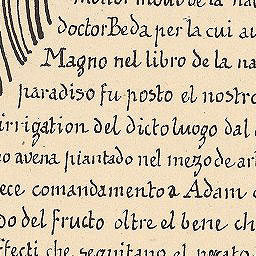 doctor Beda per la cui au
Magno nel libro de la na
paradiso fu posto el nostro
irrigation del dicto luogo dal
avena piantado nel mezo de ar
ece comandamento a Adam
do del fructo oltre el bene ch
ffecti che seguitano el peccato